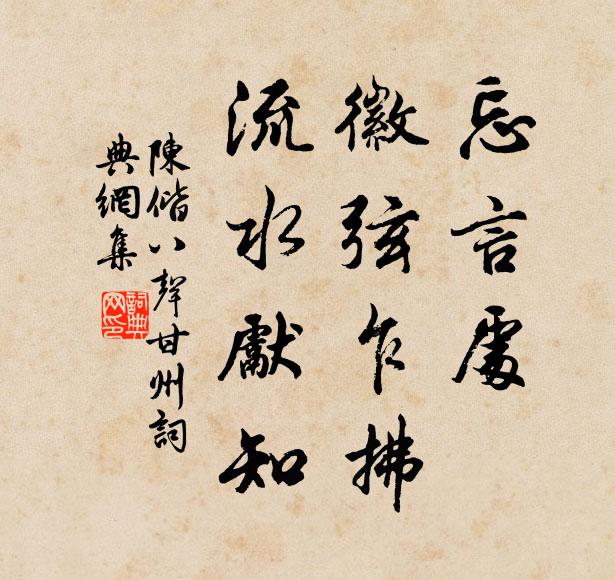 忘言處
徽弦乍拂
流水獻知
陳偕八聲甘州詞
典網集
詞典網印